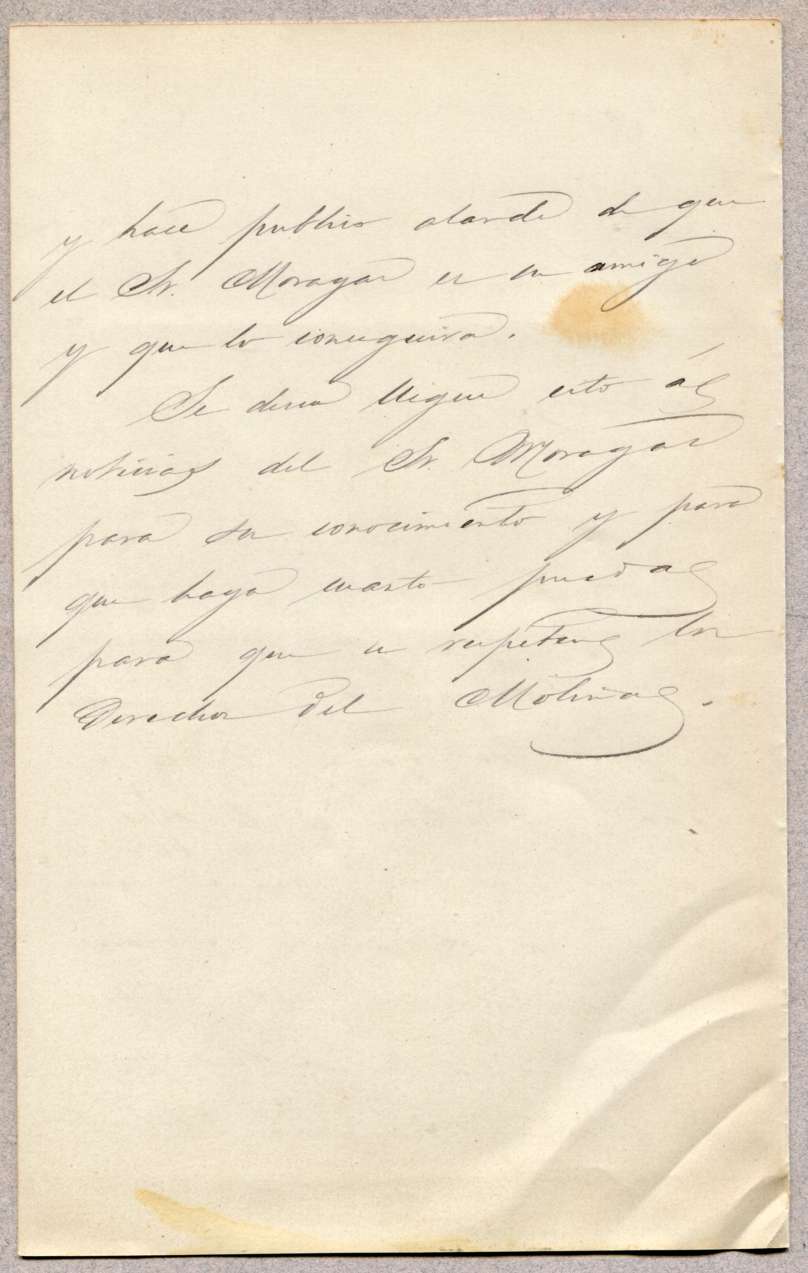 y hace publico alarde de que
el Sr. Moragas es su amigo
y que lo conseguirá.
Se desea llegue esto á
noticias del Sr. Moragas
para su conocimiento y para
que haga cuanto pueda
para que se respeten los
Derechos del Molina.